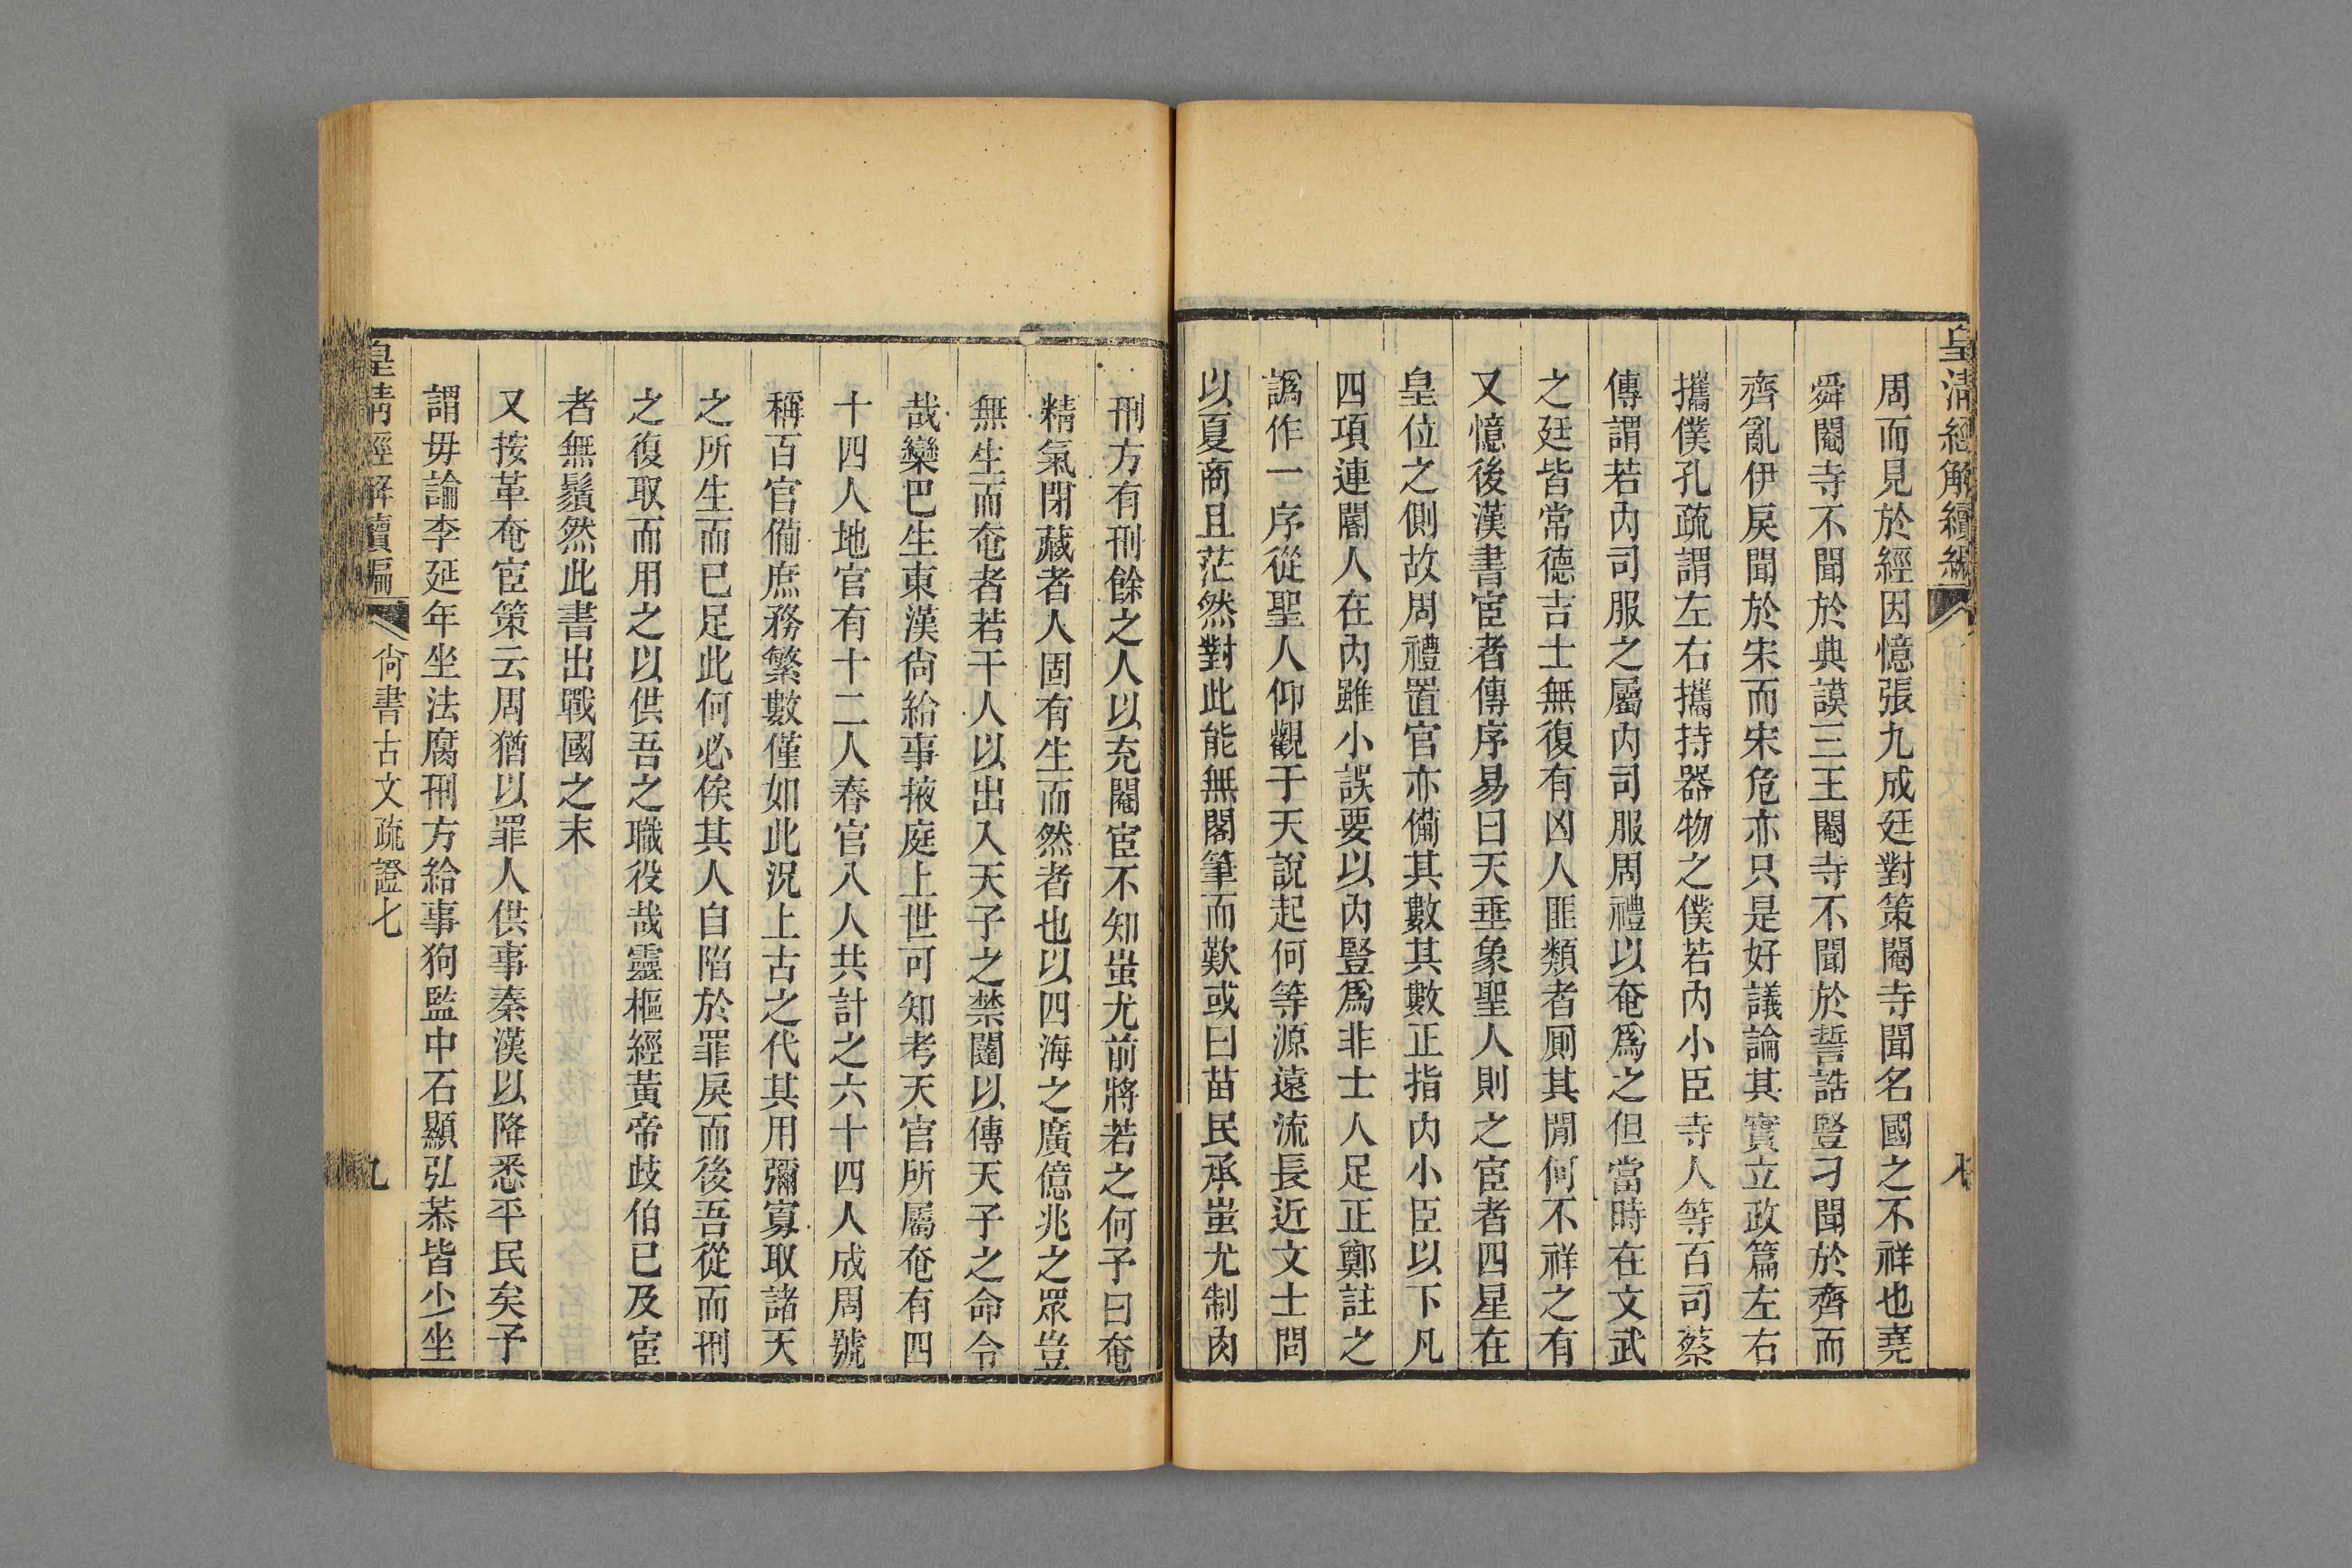 皇清經解續編
八
周而見於經因憶張九成廷對策閹寺聞名國之不祥也堯
舜閹寺不聞於典謨三王閹寺不聞於誓誥豎刁聞於齊而
齊亂伊戾聞於宋而宋危亦只是好議論其實立政篇左右
攜僕孔疏謂左右攜持器物之僕若內小臣寺人等百司蔡
傳謂若內司服之屬內司服周禮以奄爲之但當時在文武
之廷皆常德吉士無復有凶人匪類者厠其閒何不祥之有
又憶後漢書宦者傳序易曰天垂象聖人則之宦者四星在
皇位之側故周禮置官亦備其數其數正指內小臣以下凡
四項連閽人在內雖小誤要以內豎爲非士人足正鄭註之
譌作一序從聖人仰觀于天說起何等源遠流長近文士問
以夏商且茫然對此能無閣筆而歎或曰苗民承蚩尤制肉
刑方有刑餘之人以充閹宦不知蚩尤前將若之何予曰奄
精氣閉藏者人固有生而然者也以四海之廣億兆之眾豈
無生而奄者若干人以出入天子之禁闥以傳天子之命令
哉欒巴生東漢尙給事掖庭上世可知考天官所屬奄有四
十四人地官有十二人春官八人共計之六十四人成周號
稱百官備庶務繁數僅如此況上古之代其用彌寡取諸天
之所生而已足此何必俟其人自陷於罪戾而後吾從而刑
之復取而用之以供吾之職役哉靈樞經黃帝歧伯已及宦
者無鬚然此書出戰國之末
又按革奄宦策云周猶以罪人供事秦漢以降悉平民矣予
謂毋論李延年坐法腐刑方給事狗監中石顯弘恭皆少坐
皇清經解續編
尙書古文疏證七
九